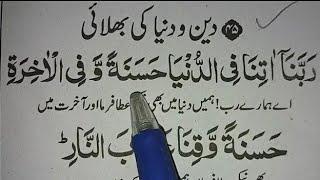 ۴۵ دین و دنیا کی بھلائی
رَبَّنَآ اٰتِنَا فِی الدُّنْیَا حَسَنَةً وَّ فِی الْاٰخِرَةِ
اے ہمارے رب! ہمیں دنیا میں بھی عطا فرما اور آخرت میں
حَسَنَةً وَّقِنَا النَّارِ